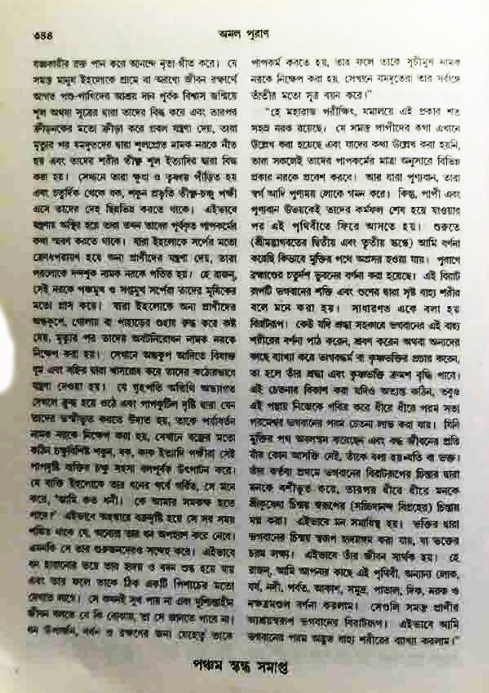 ৩৪৪
অমল পুরাণ
যক্ষকারীর রক্ত পান করে আনন্দে নৃত্য-গীত করে। যে
সমস্ত মানুষ ইহলোকে গ্রামে বা অরণ্যে জীবন রক্ষার্থে
আগত পশু-পাখিদের আশ্রয় দান পূর্বক বিশ্বাস জন্মিয়ে
শূল অথবা সূত্রের দ্বারা তাদের বিদ্ধ করে এবং তারপর
ক্রীড়নকের মতো ক্রীড়া করে প্রবল যন্ত্রণা দেয়, তারা
মৃত্যুর পর যমদূতদের দ্বারা শূলপ্রোত নামক নরকে নীত
হয় এবং তাদের শরীর তীক্ষ্ণ শূল ইত্যাদির দ্বারা বিদ্ধ
করা হয়। সেখানে তারা ক্ষুধা ও তৃষ্ণায় পীড়িত হয়
এবং চতুর্দিক থেকে বক, শকুন প্রভৃতি তীক্ষ্ণ-চঞ্চু পক্ষী
এসে তাদের দেহ ছিন্নভিন্ন করতে থাকে। এইভাবে
যন্ত্রণায় অস্থির হয়ে তারা তখন তাদের পূর্বকৃত পাপকর্মের
কথা স্মরণ করতে থাকে। যারা ইহলোকে সর্পের মতো
ক্রোধপরায়ণ হয়ে অন্য প্রাণীদের যন্ত্রণা দেয়, তারা
পরলোকে দন্দশূক নামক নরকে পতিত হয়। হে রাজন্,
সেই নরকে পঞ্চমুখ ও সপ্তমুখ সর্পেরা তাদের মূষিকের
মতো গ্রাস করে। যারা ইহলোকে অন্য প্রাণীদের
অন্ধকূপে, গোলায় বা পাহাড়ের গুহায় রুদ্ধ করে কষ্ট
দেয়, মৃত্যুর পর তাদের অবটনিরোধন নামক নরকে
নিক্ষেপ করা হয়। সেখানে অন্ধকূপ আদিতে বিষাক্ত
ধূম এবং বহ্নির দ্বারা শ্বাসরোধ করে তাদের কঠোরভাবে
যন্ত্রণা দেওয়া হয়। যে গৃহপতি অতিথি অভ্যাগত
দেখলে ক্রুদ্ধ হয়ে ওঠে এবং পাপকুটিল দৃষ্টি দ্বারা যেন
তাদের ভস্মীভূত করতে উদ্যত হয়, তাকে পর্যাবর্তন
নামক নরকে নিক্ষেপ করা হয়, সেখানে বজ্রের মতো
কঠিন চঞ্চুবিশিষ্ট শকুন, বক, কাক ইত্যাদি পক্ষীরা সেই
পাপদৃষ্টি ব্যক্তির চক্ষু সহসা বলপূর্বক উৎপাটন করে।
যে ব্যক্তি ইহলোকে তার ধনের গর্বে গর্বিত, সে মনে
করে, ‘আমি কত ধনী। কে আমার সমকক্ষ হতে
পারে?’ এইভাবে অহঙ্কারে বক্রদৃষ্টি হয়ে সে সব সময়
শঙ্কিত থাকে যে, অন্যেরা তার ধন অপহরণ করে নেবে।
এমনকি সে তার গুরুজনদেরও সন্দেহ করে। এইভাবে
ধন হারানোর ভয়ে তার হৃদয় ও বদন শুষ্ক হয়ে যায়
এবং তার ফলে তাকে ঠিক একটি পিশাচের মতো
দেখাতে লাগে। সে কখনই সুখ পায় না এবং দুশ্চিন্তাহীন
জীবন বলতে যে কি বোঝায়, তা সে জানতে পারে না।
ধন উপার্জন, বর্ধন ও রক্ষণের জন্য যেহেতু তাকে
পাপকর্ম করতে হয়, তার ফলে তাকে সূচীমুখ নামক
নরকে নিক্ষেপ করা হয়, সেখানে যমদূতেরা তার সর্বাঙ্গে
তাঁতীর মতো সূত্র বয়ন করে।”
“হে মহারাজ পরীক্ষিৎ, যমালয়ে এই প্রকার শত
সহস্র নরক রয়েছে। যে সমস্ত পাপীদের কথা এখানে
উল্লেখ করা হয়েছে এবং যাদের কথা উল্লেখ করা হয়নি,
তারা সকলেই তাদের পাপকর্মের মাত্রা অনুসারে বিভিন্ন
প্রকার নরকে প্রবেশ করবে। আর যারা পুণ্যবান, তারা
স্বর্গ আদি পুণ্যময় লোকে গমন করে। কিন্তু, পাপী এবং
পুণ্যবান উভয়কেই তাদের কর্মফল শেষ হয়ে যাওয়ার
পর এই পৃথিবীতে ফিরে আসতে হয়। শুরুতে
(শ্রীমদ্ভাগবতের দ্বিতীয় এবং তৃতীয় স্কন্ধে) আমি বর্ণনা
করেছি কিভাবে মুক্তির পথে অগ্রসর হওয়া যায়। পুরাণে
ব্রহ্মাণ্ডের চতুর্দশ ভুবনের বর্ণনা করা হয়েছে। এই বিরাট
রূপটি ভগবানের শক্তি এবং গুণের দ্বারা সৃষ্ট বাহ্য শরীর
বলে মনে করা হয়। সাধারণত একে বলা হয়
বিরাটরূপ। কেউ যদি শ্রদ্ধা সহকারে ভগবানের এই বাহ্য
শরীরের বর্ণনা পাঠ করেন, শ্রবণ করেন অথবা অন্যদের
কাছে ব্যাখ্যা করে ভাগবদ্ধর্ম বা কৃষ্ণভক্তির প্রচার করেন,
তা হলে তাঁর শ্রদ্ধা এবং কৃষ্ণভক্তি ক্রমশ বৃদ্ধি পাবে।
এই চেতনার বিকাশ করা যদিও অত্যন্ত কঠিন, তবুও
এই পন্থায় নিজেকে পবিত্র করে ধীরে ধীরে পরম সত্য
পরমেশ্বর ভগবানের পরম চেতনা লাভ করা যায়। যিনি
মুক্তির পথ অবলম্বন করেছেন এবং বদ্ধ জীবনের প্রতি
যাঁর কোন আসক্তি নেই, তাঁকে বলা হয় যতি বা ভক্ত।
তাঁর কর্তব্য প্রথমে ভগবানের বিরাটরূপের চিন্তার দ্বারা
মনকে বশীভূত করে, তারপর ধীরে ধীরে মনকে
শ্রীকৃষ্ণের চিন্ময় স্বরূপের (সচ্চিদানন্দ বিগ্রহের) চিন্তায়
মগ্ন করা। এইভাবে মন সমাধিস্থ হয়। ভক্তির দ্বারা
ভগবানের চিন্ময় স্বরূপ হৃদয়ঙ্গম করা যায়, যা ভক্তের
চরম লক্ষ্য। এইভাবে তাঁর জীবন সার্থক হয়। হে
রাজন্, আমি আপনার কাছে এই পৃথিবী, অন্যান্য লোক,
বর্ষ, নদী, পর্বত, আকাশ, সমুদ্র, পাতাল, দিক, নরক ও
নক্ষত্রমণ্ডল বর্ণনা করলাম। সেগুলি সমস্ত প্রাণীর
আশ্রয়স্বরূপ ভগবানের বিরাটরূপ। এইভাবে আমি
ভগবানের পরম অদ্ভুত বাহ্য শরীরের ব্যাখ্যা করলাম।”
পঞ্চম স্কন্ধ সমাপ্ত